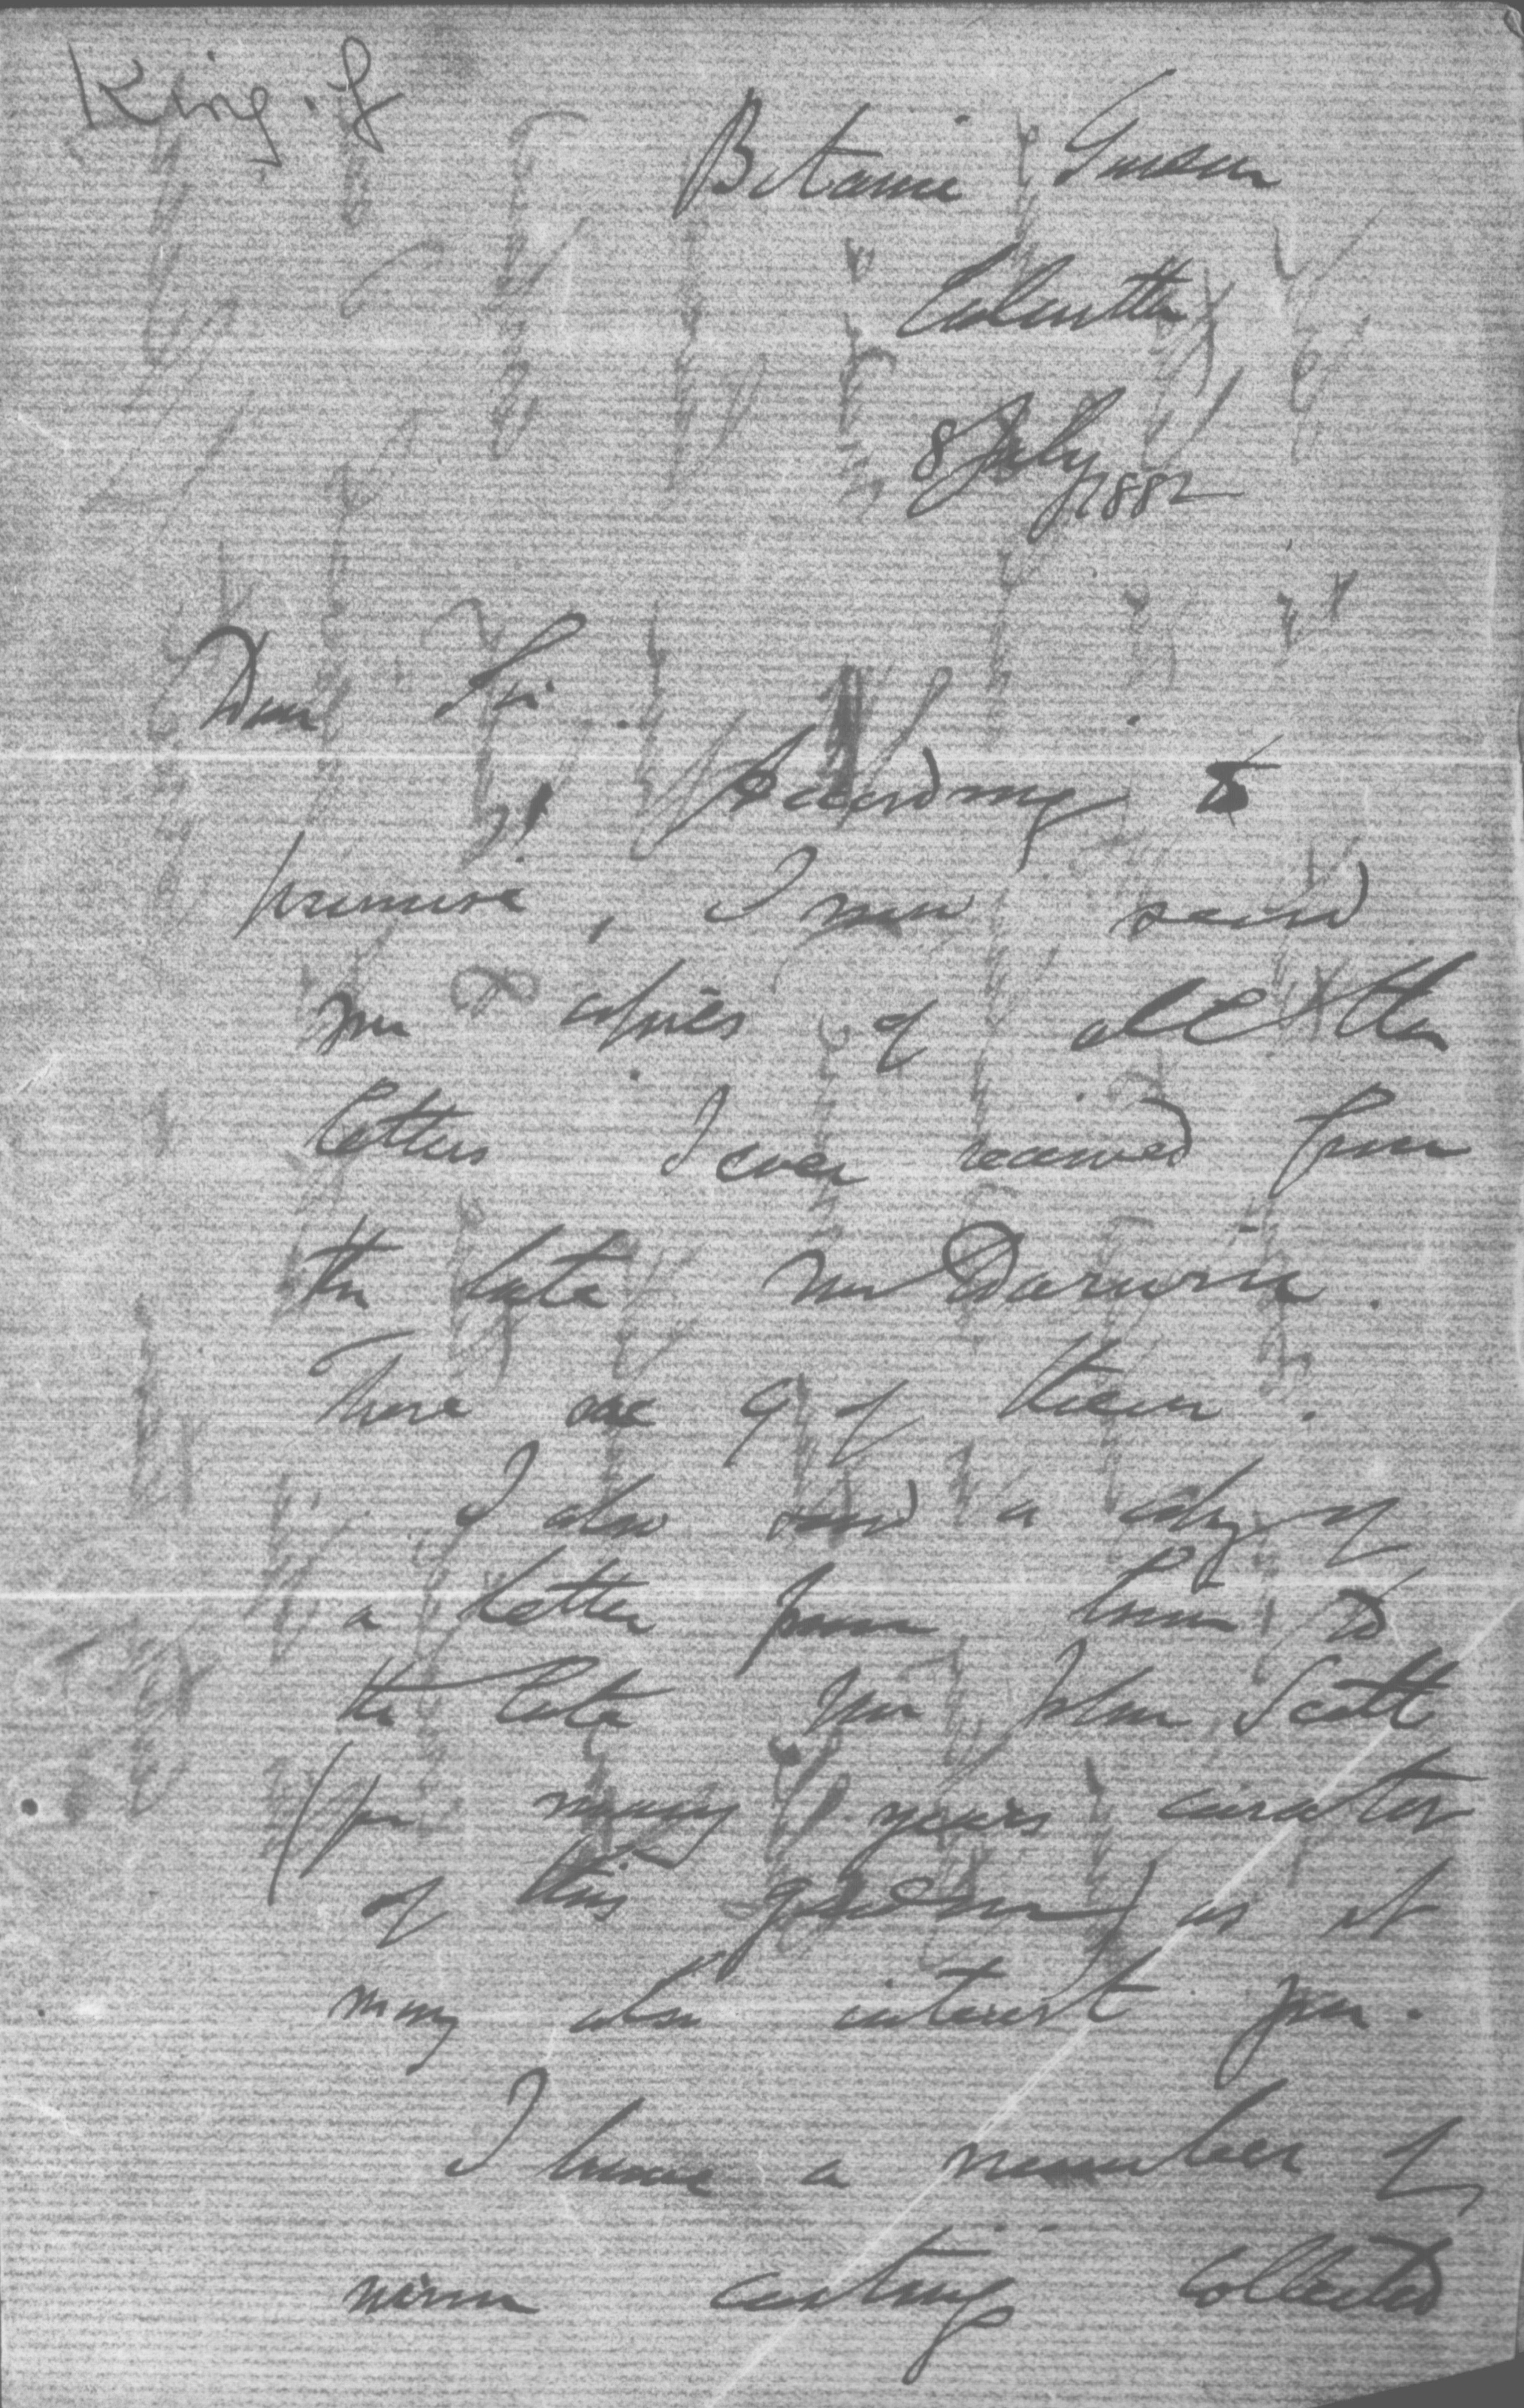 King. G
Botanic Garden
Calcutta
8 July
1882
Dear Sir.
According to
promise, I now send
you copies of all the
letters I ever received from
the late Mr Darwin.
There are 9 of them.
I also send a copy of
a letter from him to
the late Mr John Scott
(for many years curator
of this garden) as it
may also interest you.
I have a number of
worm castings collected